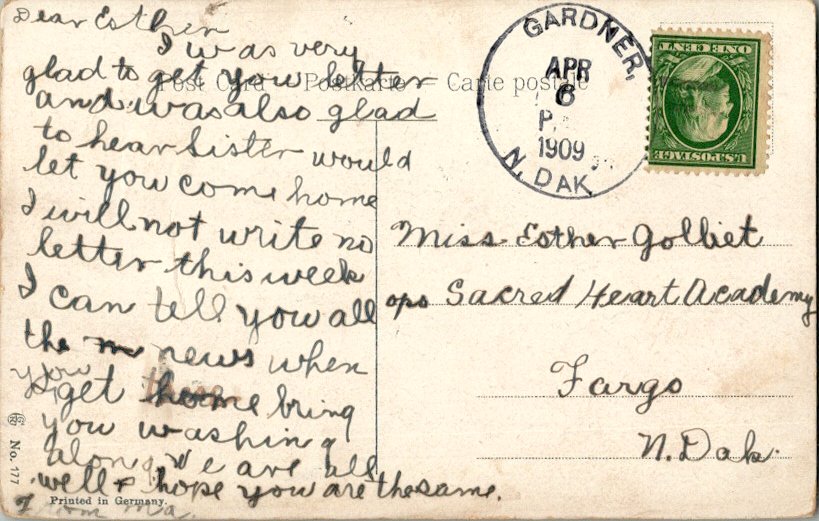 Dear Esther
I was very
glad to get you letter
and was also glad
to hear Sister would
let you come home
I will not write no
letter this week
I can tell you all
the news when
you
get home bring
you washing
along We are all
well & hope you are the same.
From Ma.
Post Card Postkarte Carte postale
GARDNER,
APR
6
P.
1909
N. DAK.
ONE CENT
U.S. POSTAGE
Miss Esther Golliet
Sacred Heart Academy
Fargo
N. Dak.
No. 177
Printed in Germany.